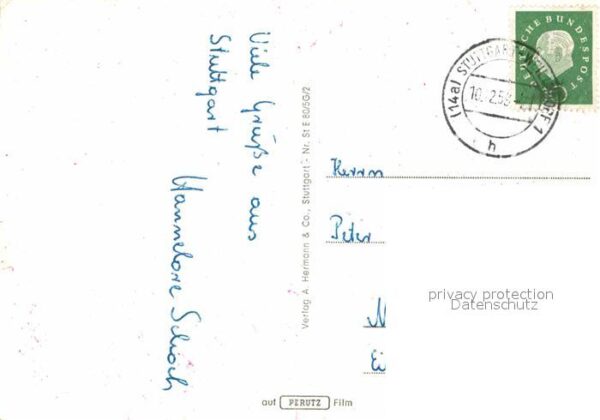 Viele Grüße aus
Stuttgart
Hannelore Schoch
Verlag A. Hermann & Co., Stuttgart - Nr. St E 80/5G/2
DEUTSCHE BUNDESPOST
(14a) STUTTGART
10.-2.59
h
Herrn
Peter
N
privacy protection
Datenschutz
auf PERUTZ Film